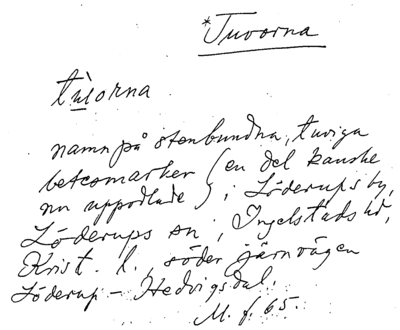 *Tuvorna
tùơrna
namn på stenbundna, tuviga
betesmarker (en del kanske
nu uppodlade), i Löderups by,
Löderups sn, Ingelstads hd,
Krist. l., söder järnvägen
Löderup – Hedvigsdal.
M. f. 65.